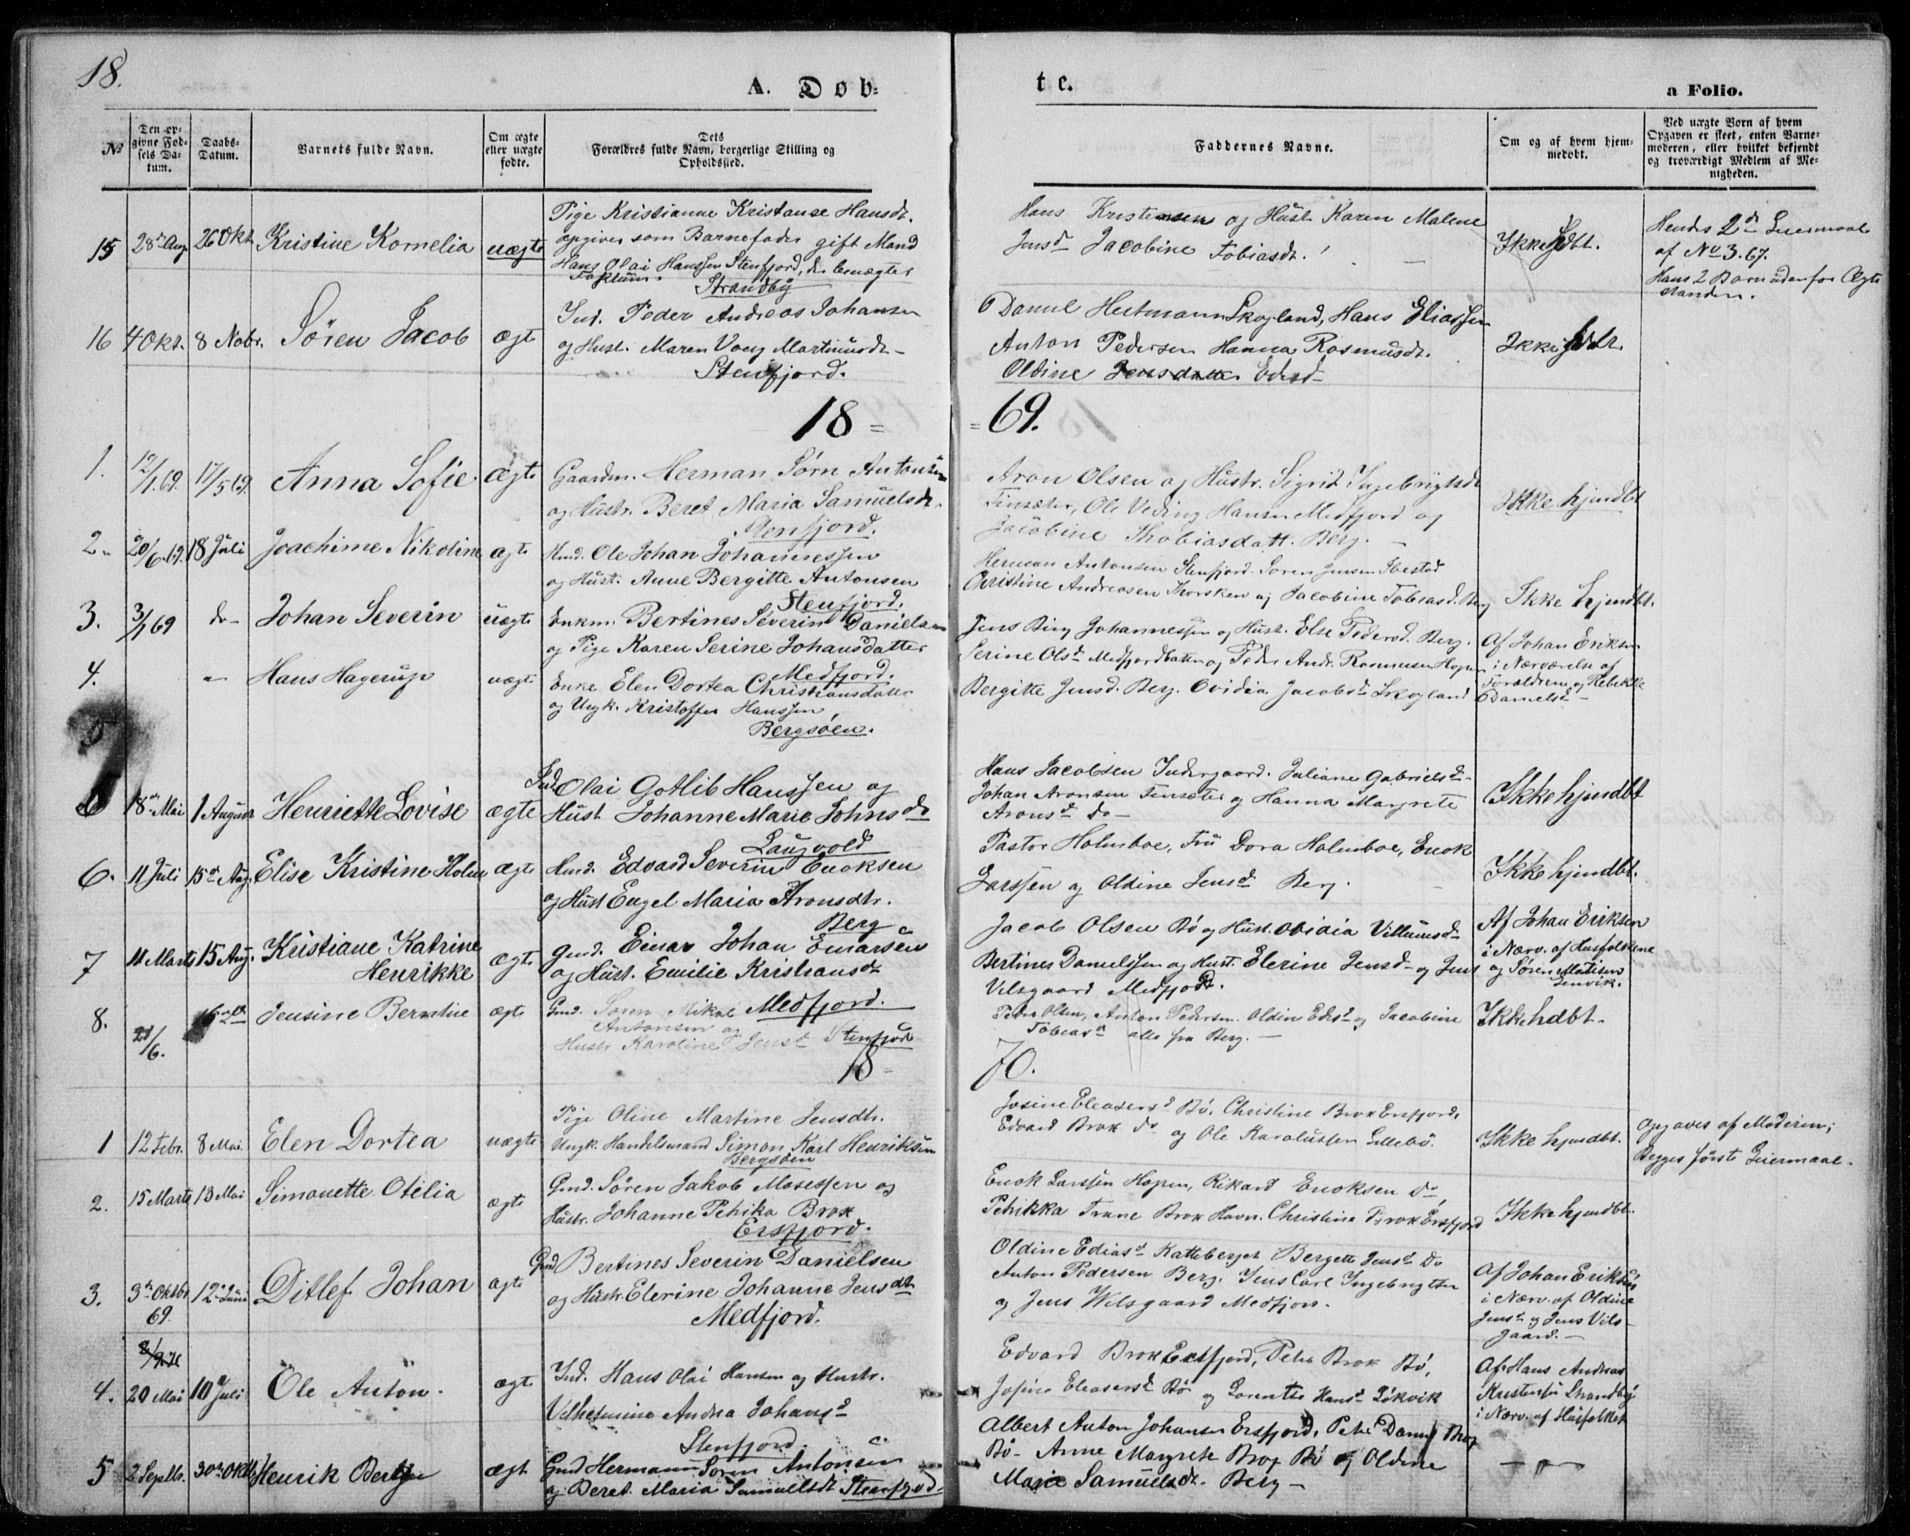 18.
A. Døb-
te.
a Folio.
No
Den op-
givne Fød-
sels Da-
tum.
Daabs-
Datum.
Barnets fulde Navn.
Om ægte
eller uægte
fødte.
Dets
Forældres fulde Navn, borgerlige Stilling og
Opholdssted.
Faddernes Navne.
Om og af hvem hjem-
medøbt.
Ved uægte Børn af hvem
Opgaven er skeet, enten Barne-
moderen, eller hvilket bekjendt
og troværdigt Medlem af Me-
nigheden.
15 28de Aug 26 Okt Kristine Kornelia uægte
Pige Kristianne Kristanse Hansdt.
opgiver som Barnefader gift Mand
Hans Olai Hanssen Stenfjord, der benægter
Faktum. Strandby
Hans Kristensen og Hust. Karen Malene
Jensd Jacobine Tobiasdt.
Ikke hjdbt.
Hendes 2d Leiermaal
af No 3. 67.
Hans 2 Barn udenfor Ægte
standen.
16 4 Okt. 8 Nobr. Søren Jacob ægte
Ind. Peder Andreas Johansen
og Hust. Maren Martinusdt
Stenfjord.
Daniel Heitmann Skogland, Hans Eliassen
Anton Pedersen Hanna Rasmusdt.
Oldine Jensdatter Edisd
Ikke hjdbt.
18 = = 69.
1. 12/1.69. 17/5 69. Anna Sofie ægte
Gaardm. Herman Sørn Antonsen
og Hustr. Beret Maria Samuelsdt.
Stenfjord.
Aron Olsen og Hustr. Sigrid Ingebrigtsdt
Finsæter, Ole Veding Hansen Medfjord og
Jacobine Thobiasdatt. Berg.
Ikke hjemdbt
2. 20/6.69. 18 Juli Joachime Nikoline ægte
Hmd. Ole Johan Johannessen
og Hust. Anne Bergitte Antonsen
Stenfjord.
Herman Antonsen Stenfjord. Søren Jensen Ibestad
Christine Andreasen Thorsken og Jacobine Tobiasd. Berg
Ikke hjemdbt.
3. 3/1 69 do Johan Severin uægte
Enkm. Bertines Severin Danielsen
og Pige Karen Serine Johansdatter
Medfjord.
Jens Berg Johannessen og Hust. Else Pedersd. Berg.
Serine Olsd Medfjordbotten og Peder Andr. Rasmusen Hopen
Af Johan Eriksen
i Nærværelse af
Forældrene og Rebekke
Danielsd
4. Hans Hagerup uægte
Enke Elen Dortea Christiansdatter
og Ungk. Kristoffer Hanssen
Bergsøen.
Bergitte Jensd. Berg. Ovidia Jacobsd Skogland
5 18de Mai 1 August Henriette Lovise ægte
Ind. Olai Gotlib Hanssen og
Hust Johanne Marie Johnsd
Laugvold
Hans Jacobsen Indergaard. Juliane Gabrielsd
Johan Aronsen Finsæter og Hanna Margrete
Aronsd do
Ikke hjemdbt
6. 11 Juli 15d Aug. Elise Kristine Holm ægte
Hmd. Edvard Severin Enoksen
og Hust Engel Maria Aronsdtr.
Berg
Pastor Holmboe, Fru Dora Holmboe, Enok
Larssen og Oldine Jensd Berg.
Ikke hjemdbt.
7 11 Marts 15 Aug. Kristiane Katrine
Henrikke ægte
Gmd. Einar Johan Einarsen
og Hust. Emilie Kristiansdt
Medfjord.
Jacob Olsen Bø og Hust. Ovidia Villumsd
Bertines Danielssen og Hust. Elerine Jensd og Jens
Vilsgaard Medfjord.
Af Johan Eriksen
i Nærv. af Husfolkene
og Søren Madisen
Lenvik.
8. 21/6. Jensine Berntine ægte
Gmd. Søren Mikal
Antonsen og
Hustr Karoline Jensd Stenfjord
Peder Olsen, Anton Pedersen. Oldin Edisd og Jacobine
Tobiasd alle fra Berg.
Ikke hdbt.
18 = 70.
1 12 Febr. 8 Mai Elen Dortea uægte
Pige Oline Martine Jensdtr.
Ungk. Handelsmand Simon Karl Henriksen
Bergsøen
Josine Eleasersd Bø, Christine Brox Ersfjord,
Edvard Brox do og Ole Karolussen Lillebø.
Ikke hjemdbt.
Opgaves af Moderen;
Begges første Leiermaal.
2. 15 Marts 13 Mai Simonette Otelia ægte
Gmd. Søren Jakob Mosessen og
Hustr. Johanne Petrika Brox
Ersfjord.
Enok Larssen Hopen, Rikard Enoksen do,
Petrikka Trane Brox Havn. Christine Brox Ersfjord
Ikke hjemdbt.
3. 3die Oktbr 69. 12te Juni Ditlef Johan ægte
Gmd Bertines Severin Danielsen
og Hustr Elerine Johanne Jensdt
Medfjord.
Oldine Ediasd Katteberget Bergette Jensd do
Anton Pedersen Berg. Jens Carl Ingebrigtsen
og Jens Wilsgaard Medfjord.
Af Johan Eriksen
i Nærv. af Oldine
Jensd og Jens Vils-
gaard.
4. 20 Mai 10 Juli Ole Anton. ægte
Ind. Hans Olai Hansen og Hustr.
Vilhelmine Andrea Johansd
Stenfjord
Edvard Brox Ersfjord, Peter Brox Bø,
Josine Eleasersd Bø og Lorentse Hansd Løkvik
Af Hans Andreas
Kristensen Strandby
i Nærv. af Husfolket
5 2 Septbr. 30te Oktbr Henrik Berg ægt
Gmd Hermann Søren Antonsen
og Beret Maria Samuelsdt Stenfjord.
Albert Anton Johansen Ersfjord, Peter Daniel Brox
Bø Anne Margrete Brox Bø og Oldine
Marie Samuelsdt. Berg